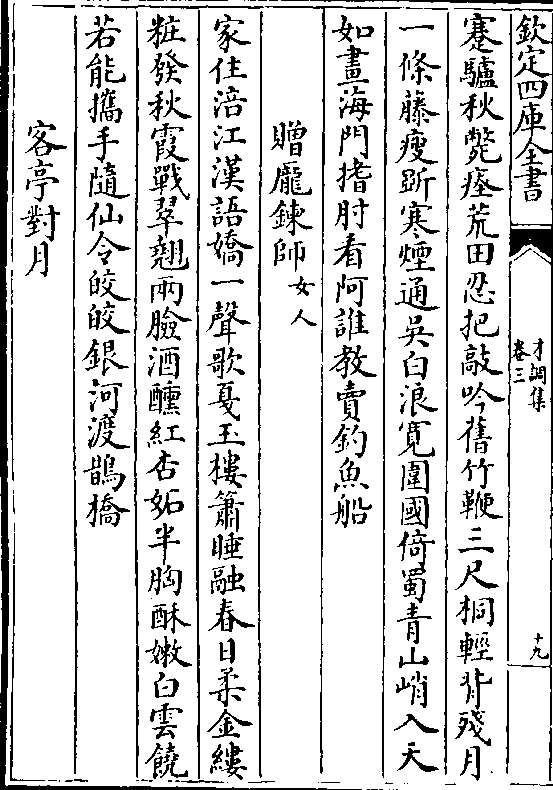 欽定四庫全書
才調集
卷三
十九
蹇驢秋斃瘞荒田忍把敲吟舊竹鞭三尺桐輕背殘月
一條藤瘦斵寒煙通吳白浪寛圍國倚蜀青山峭入天
如畫海門搘肘看阿誰教賣釣魚船
贈龐鍊師女人
家住涪江漢語嬌一聲歌戛玉樓簫睡融春日柔金縷
粧發秋霞戰翠翹兩臉酒醺紅杏妬半胸酥嫩白雲饒
若能攜手隨仙令皎皎銀河渡鵲橋
客亭對月